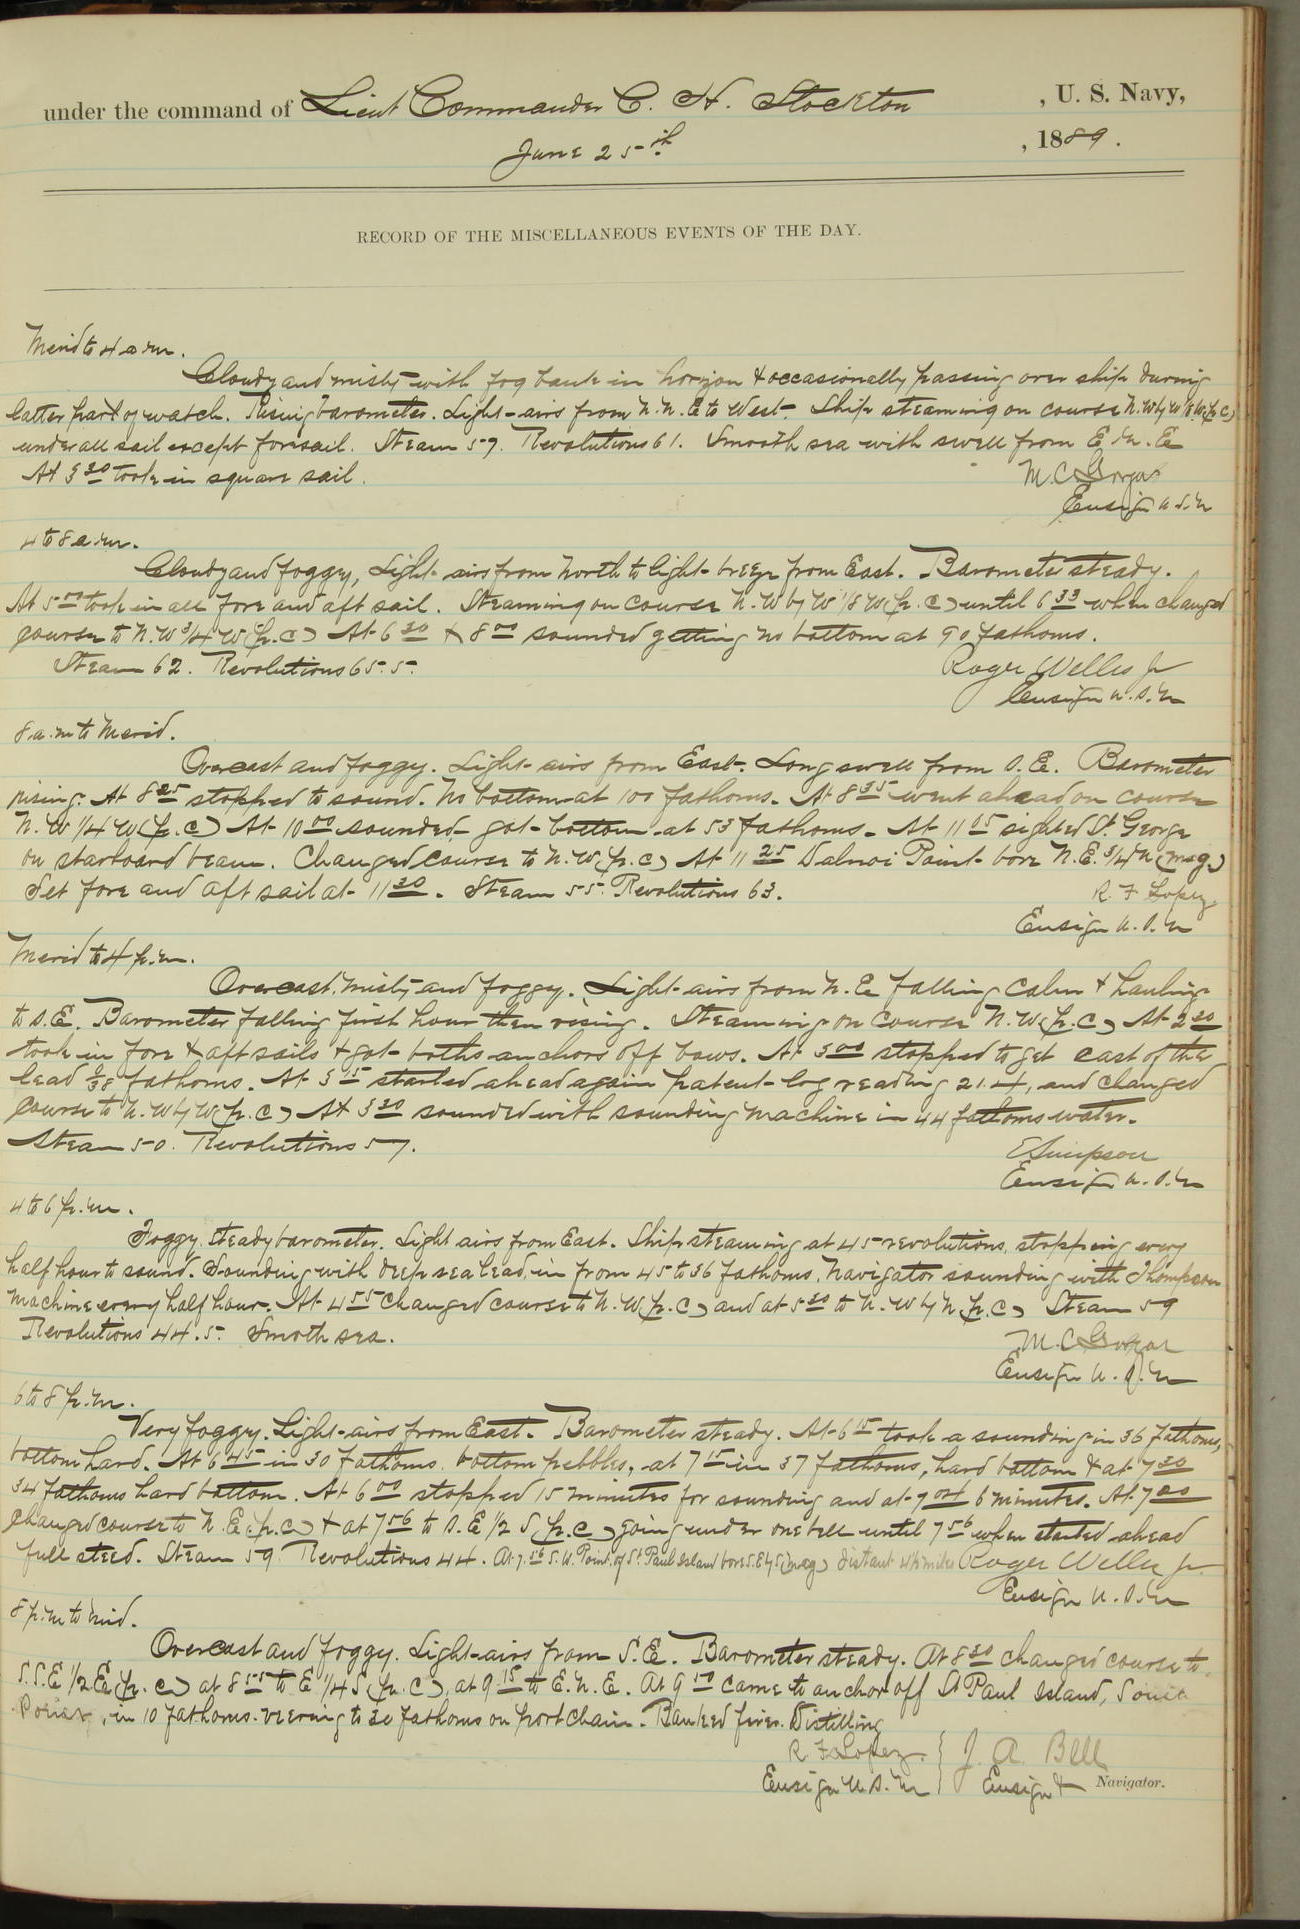 under the command of Lieut Commander C. H. Stockton , U. S. Navy,
June 25th , 1889.
RECORD OF THE MISCELLANEOUS EVENTS OF THE DAY.
Merid to 4 a.m.
Cloudy and misty with fog bank in horizon & occasionally passing over ship during
latter part of watch. Rising barometer. Light airs from N.N.E to West. Ship steaming on course N.W by W 1/8 W (p.c)
under all sail except foresail. Steam 57. Revolutions 61. Smooth sea with swell from E.N.E
At 3 30 took in square sail.
M. C. Gorgas
Ensign U.S.N
4 to 8 a.m.
Cloudy and foggy, Light airs from North to light breeze from East. Barometer steady.
At 5 00 took in all fore and aft sail. Steaming on course N.W by W 1/8 W (p.c) until 6 33 when changed
course to N.W 3/4 W (p.c) At 6 30 & 8 00 sounded getting no bottom at 90 fathoms.
Steam 62. Revolutions 65.5.
Roger Welles Jr
Ensign U.S.N
8 a.m to Merid.
Overcast and foggy. Light airs from East. Long swell from S.E. Barometer
rising. At 8 25 stopped to sound. No bottom at 100 fathoms. At 8 35 went ahead on course
N.W 1/4 W (p.c) At 10 00 sounded got bottom at 53 fathoms. At 11 05 sighted St. George
on starboard beam. Changed course to N.W. (p.c) At 11 25 Dalnoi Point bore N.E. 3/4 N (mag)
Set fore and aft sail at 11 30. Steam 55. Revolutions 63.
R. F. Lopez
Ensign U.S.N
Merid to 4 p.m.
Overcast, misty and foggy. Light airs from N.E falling calm & hauling
to S.E. Barometer falling first hour then rising. Steaming on course N.W (p.c) At 2 30
took in fore & aft sails & got boths anchors off bows. At 3 00 stopped to get cast of the
lead 38 fathoms. At 3 15 started ahead again patent log reading 21.4, and changed
course to N.W by W (p.c) At 3 30 sounded with sounding machine in 44 fathoms water.
Steam 50. Revolutions 57.
E Simpson
Ensign U.S.N
4 to 6 p.m.
Foggy. Steady barometer. Light airs from East. Ship steaming at 45 revolutions, stopping every
half hour to sound. Sounding with deep sea lead, in from 45 to 36 fathoms, Navigator sounding with Thompson
machine every half hour. At 4 55 changed course to N.W (p.c) and at 5 30 to N.W by N (p.c) Steam 59
Revolutions 44.5. Smooth sea.
M. C. Gorgas
Ensign U.S.N
6 to 8 p.m.
Very foggy. Light airs from East. Barometer steady. At 6 15 took a sounding in 36 fathoms,
bottom hard. At 6 45 in 30 fathoms bottom pebbles, at 7 15 in 37 fathoms, hard bottom & at 7 30
34 fathoms hard bottom. At 6 00 stopped 15 minutes for sounding and at 7 04 6 minutes. At 7 20
changed course to N.E (p.c) & at 7 56 to S.E 1/2 S (p.c) going under one bell until 7 56 when started ahead
full steed. Steam 59. Revolutions 44. At 7.56 S.W. Point of St Paul Island bore S.E by S (mag) distant 4 1/2 miles Roger Welles Jr.
Ensign U.S.N
8 p.m to Mid.
Overcast and foggy. Light airs from S.E. Barometer steady. At 8 30 changed course to
S.S.E 1/2 E (p.c) at 8 55 to E 1/4 S (p.c), at 9 15 to E.N.E. At 9 50 came to anchor off St Paul Island,
in 10 fathoms veering to 30 fathoms on port chain. Banked fires. Distilling
R F Lopez. J. A. Bell
Ensign U.S.N Ensign & Navigator.